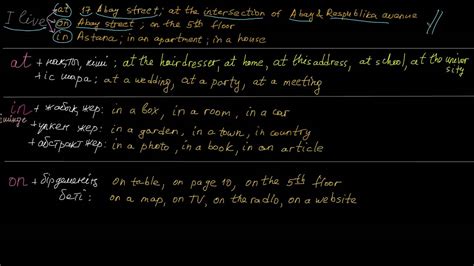 at 17 Abay street; at the intersection of Abay & Respublika avenue
I live on Abay street; on the 5th floor
in Astana; in an apartment; in a house
at + нақтылы кіші ; at the hairdresser, at home, at this address, at school, at the university
+ іс шара: at a wedding, at a party, at a meeting
in + жабық жер: in a box, in a room, in a car
ішінде + үлкен жер: in a garden, in a town, in country
+ абстракт жер: in a photo, in a book, in an article
on + бірдеменің on table, on page 10, on the 5th floor
беті: on a map, on TV, on the radio, on a website